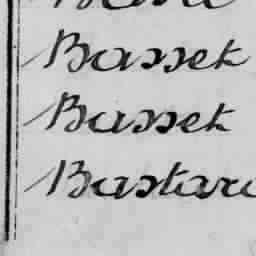 Bassek
Bassek
Bastard